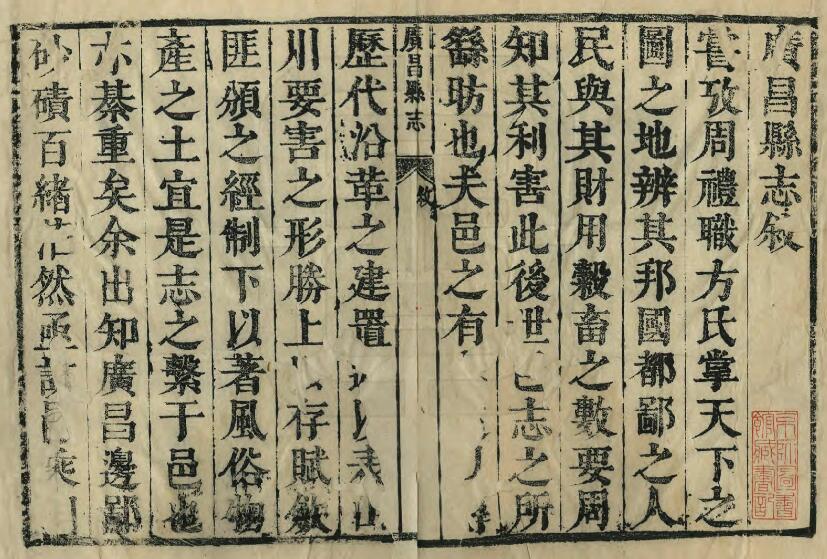 廣昌縣志敘
嘗攷周禮職方氏掌天下之
圖之地辨其邦國都鄙之人
民與其財用糓畜之數要周
知其利害此後世邑志之所
繇昉也夫邑之有
廣昌縣志 敘
歷代沿革之建置 以表山
川要害之形勝上以存賦斂
匪頒之經制下以著風俗物
產之土宜是志之繫于邑也
亦綦重矣余出知廣昌邊鄙
砂磧百緒茫然亟討邑乘